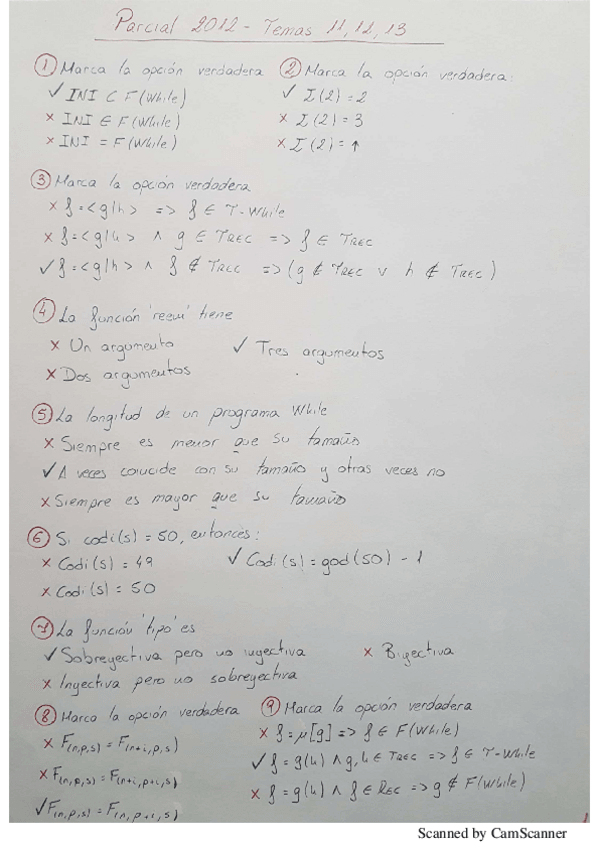 Parcial 2012 - Temas 11, 12, 13
① Marca la opción verdadera
✓ INI ⊂ F(While)
× INI ∈ F(While)
× INI = F(While)
② Marca la opción verdadera:
✓ I(2) = 2
× I(2) = 3
× I(2) = ↑
③ Marca la opción verdadera
× f = <g|h> => f ∈ T-While
× f = <g|h> ∧ g ∈ TREC => f ∈ TREC
✓ f = <g|h> ∧ f ∉ TREC => (g ∉ TREC ∨ h ∉ TREC)
④ La función 'recui' tiene
× Un argumento
✓ Tres argumentos
× Dos argumentos
⑤ La longitud de un programa While
× Siempre es menor que su tamaño
✓ A veces coincide con su tamaño y otras veces no
× Siempre es mayor que su tamaño
⑥ Si codi(s) = 50, entonces:
× Codi(s) = 49
✓ Codi(s) = god(50) - 1
× Codi(s) = 50
⑦ La función 'tipo' es
✓ Sobreyectiva pero no inyectiva
× Biyectiva
× Inyectiva pero no sobreyectiva
⑧ Marca la opción verdadera
× F(n,p,s) = F(n+i,p,s)
× F(n,p,s) = F(n+i,p+i,s)
✓ F(n,p,s) = F(n,p+i,s)
⑨ Marca la opción verdadera
× f = μ[g] => f ∈ F(While)
✓ f = g(h) ∧ g,h ∈ TREC => f ∈ T-While
× f = g(h) ∧ f ∈ REC => g ∉ F(While)
1
Scanned by CamScanner